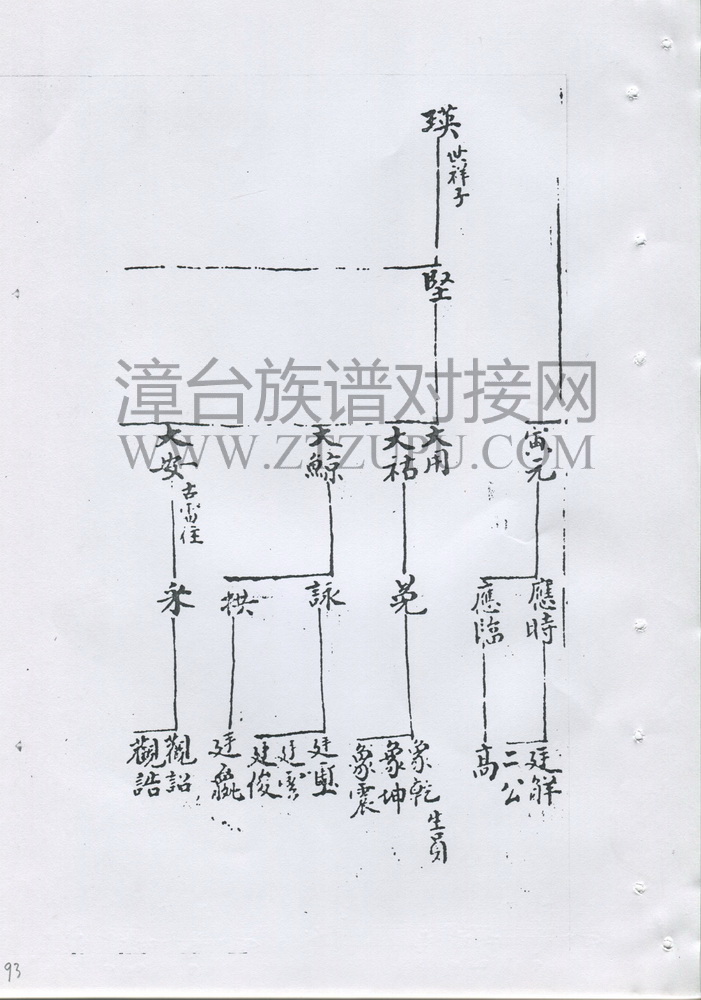 瑛
世祥子
堅
寅元
大用
大祐
大鯨
大安
古雷住
應時
應臨
冕
詠
拱
永
廷解
二公
高
象乾
生員
象坤
象震
廷
廷
廷俊
廷
觀詔
觀誥
漳台族谱对接网
WWW.ZTZUPU.COM
93